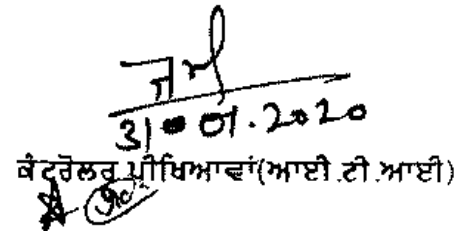 31.01.2020
ਕੰਟਰੋਲਰ ਪ੍ਰੀਖਿਆਵਾਂ(ਆਈ.ਟੀ.ਆਈ)